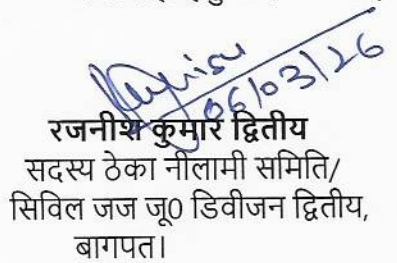 06/03/26
रजनीश कुमार द्वितीय
सदस्य ठेका नीलामी समिति/
सिविल जज जू0 डिवीजन द्वितीय,
बागपत।